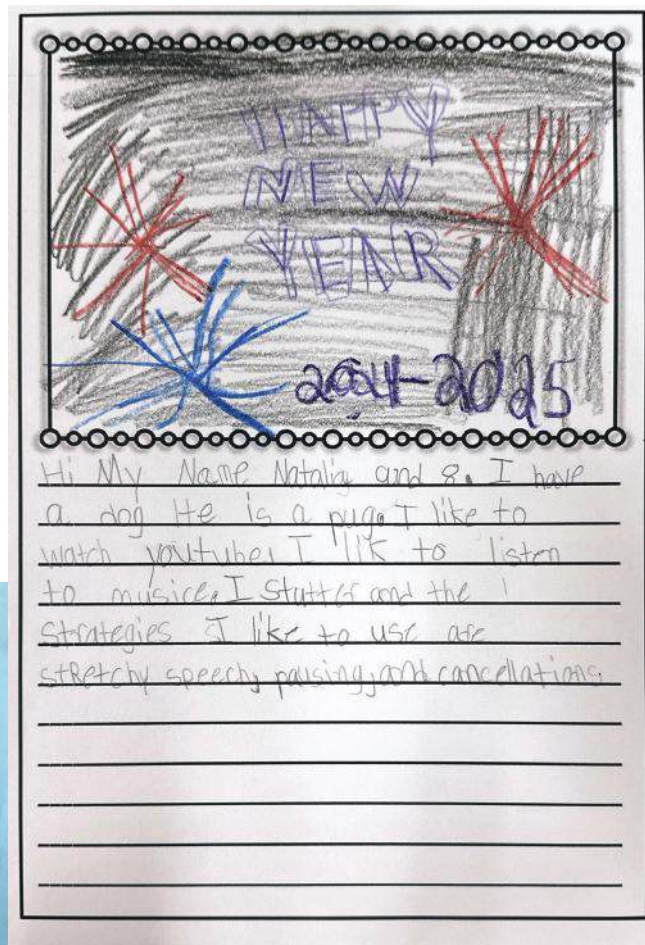 HAPPY
NEW
YEAR
2024-2025
Hi My Name Natalia and 8. I have
a dog He is a pug. I like to
watch youtube. I lik to listen
to musice. I stutter and the
strategies I like to use are
stRetchy speech, pausing, and cancellations.